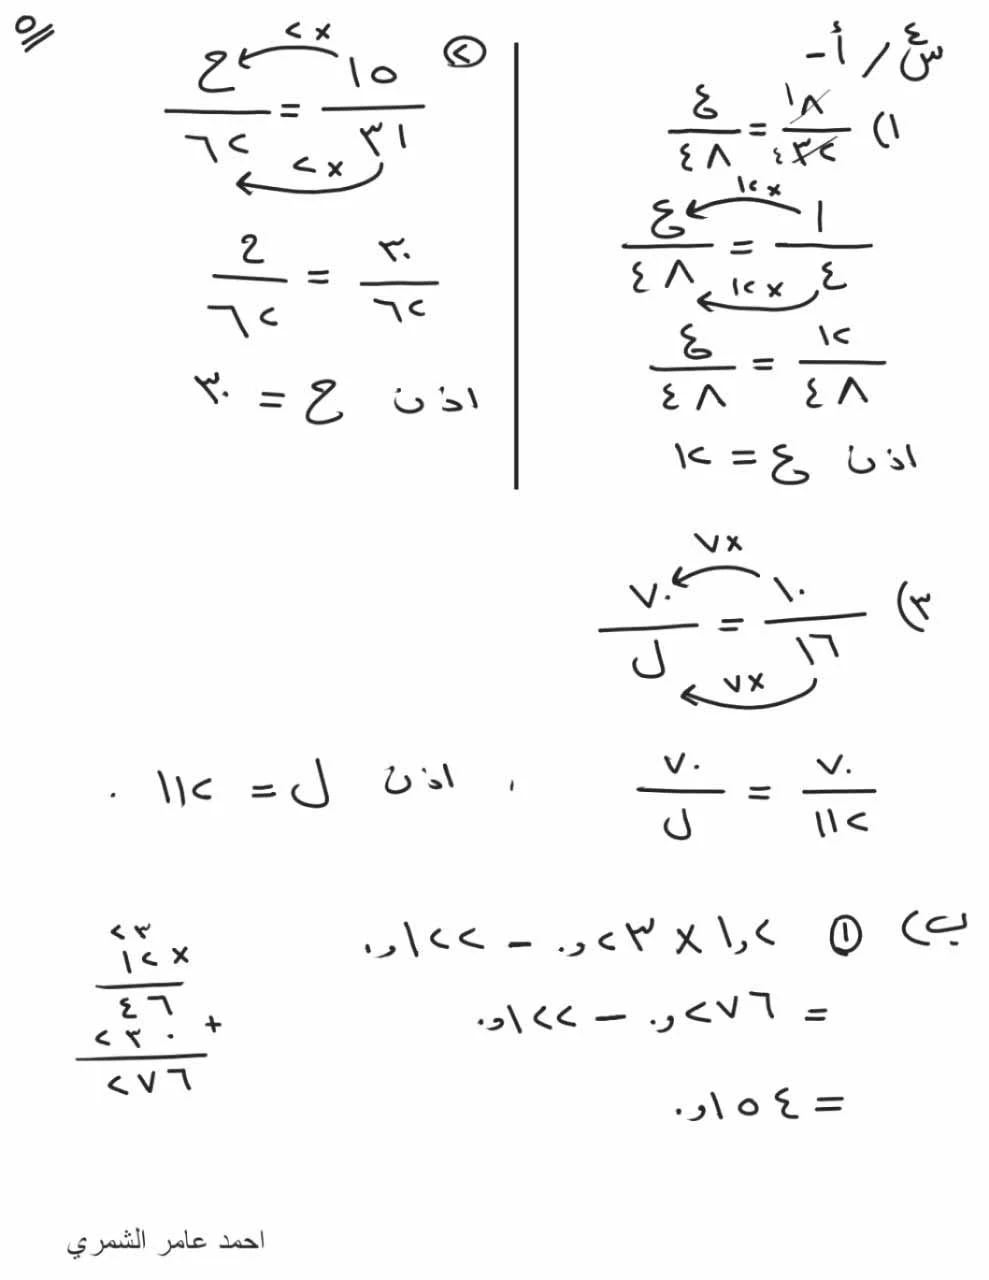 ٥
س٤/ أ-
١) ١٨/٣٢ ٤ = ع/٤٨
١٢×
١/٤ = ع/٤٨
١٢×
١٢/٤٨ = ع/٤٨
اذن ع = ١٢
٢
٢×
١٥/٣١ = ح/٦٢
٢×
٣٠/٦٢ = ح/٦٢
اذن ح = ٣٠
٣)
٧×
١٠/١٦ = ٧٠/ل
٧×
٧٠/١١٢ = ٧٠/ل ، اذن ل = ١١٢ .
ب) ١ ١,٢ × ٠,٢٣ - ٠,١٢٢
= ٠,٢٧٦ - ٠,١٢٢
= ٠,١٥٤
٢٣
١٢ ×
٤٦
٢٣٠ +
٢٧٦
احمد عامر الشمري